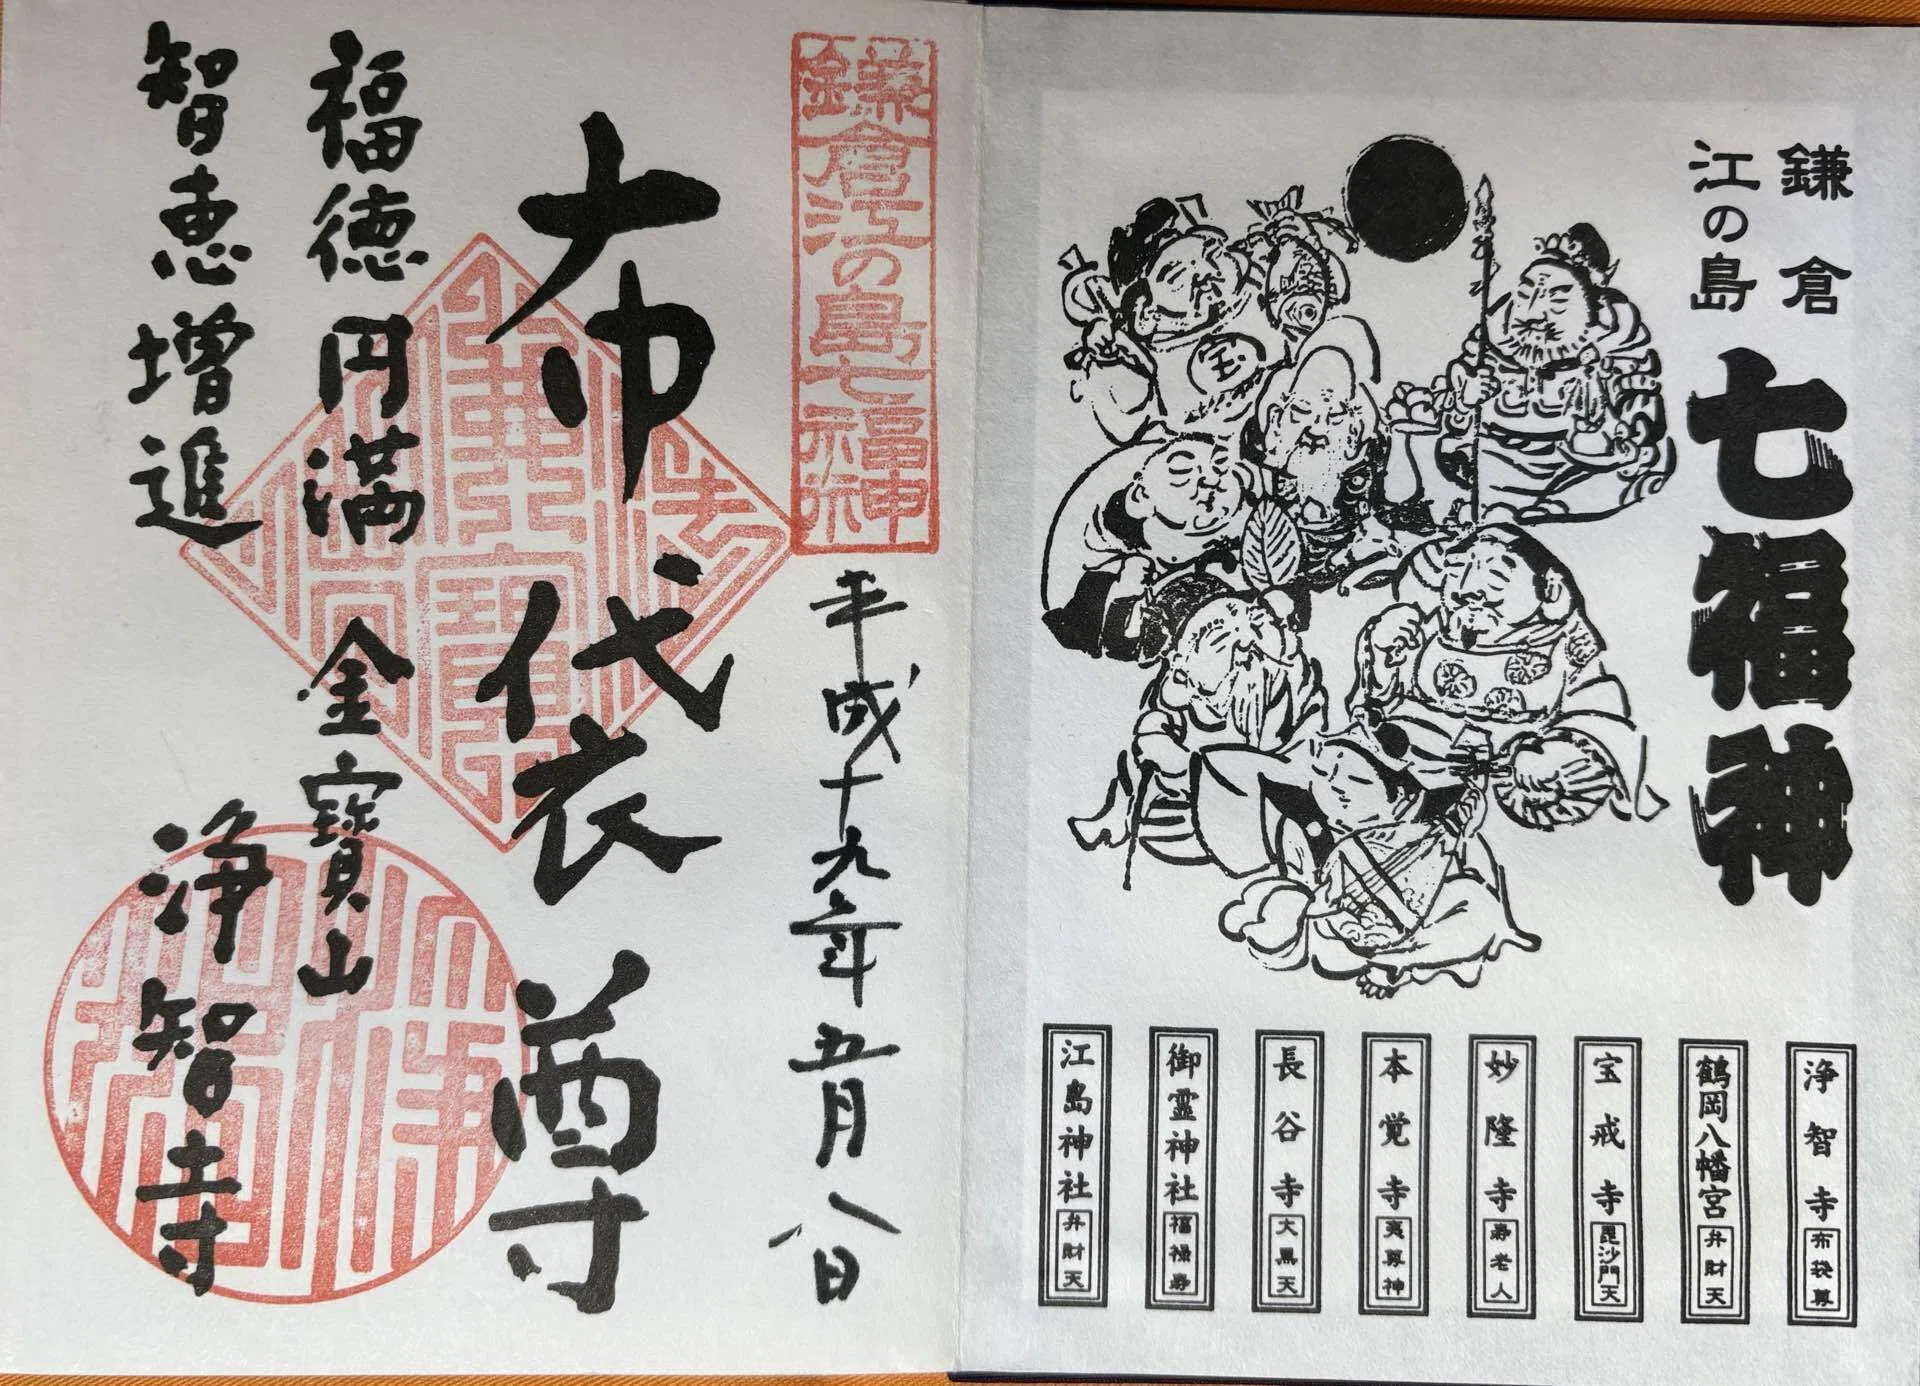 鎌倉
江の島
七福神
宝
浄智寺 布袋尊
鶴岡八幡宮 弁財天
宝戒寺 毘沙門天
妙隆寺 寿老人
本覚寺 夷尊神
長谷寺 大黒天
御霊神社 福禄寿
江島神社 弁財天
鎌倉江の島七福神
平成十九年五月八日
布袋尊
福徳円満 金寳山
智恵増進 浄智寺